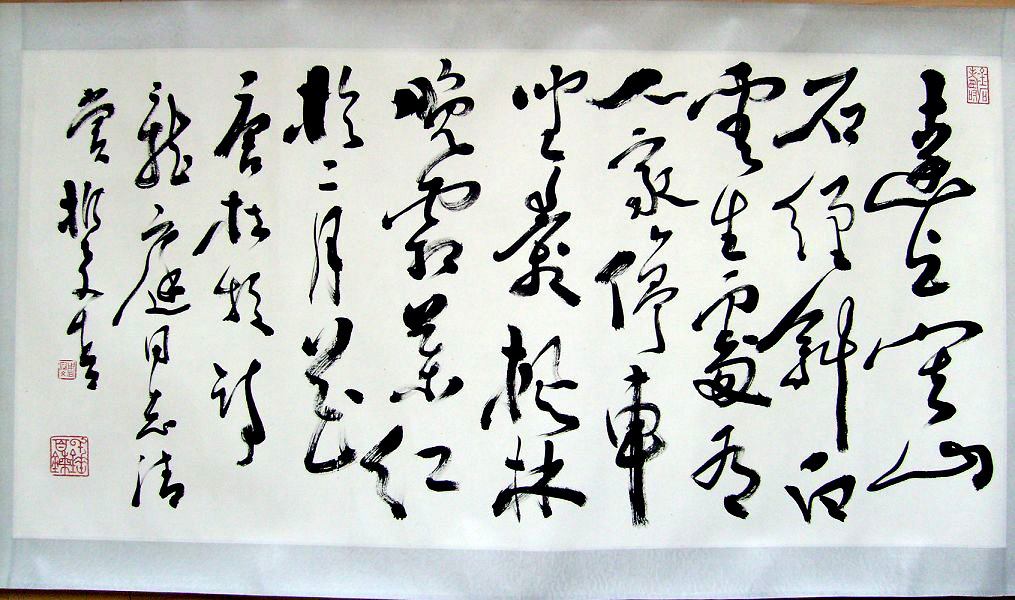 遠上寒山
石徑斜白
雲生處有
人家停車
坐愛楓林
晚霜葉紅
於二月花
唐杜牧詩
龍庭同志清
賞